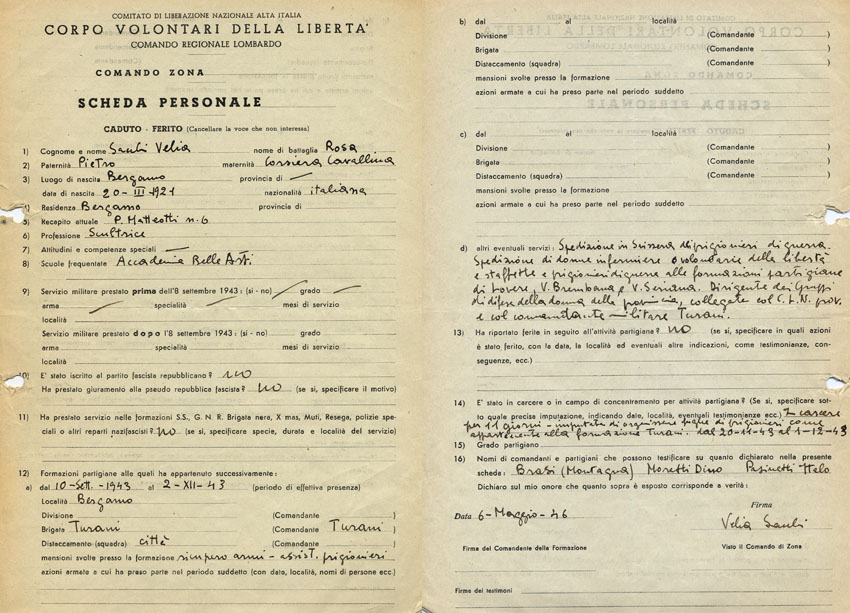 COMITATO DI LIBERAZIONE NAZIONALE ALTA ITALIA
CORPO VOLONTARI DELLA LIBERTA'
COMANDO REGIONALE LOMBARDO
COMANDO ZONA
SCHEDA PERSONALE
CADUTO - FERITO (Cancellare la voce che non interessa)
1) Cognome e nome Velia nome di battaglia Rosa
2) Paternità Pietro maternità Corsiera Cavallina
3) Luogo di nascita Bergamo provincia di —
data di nascita 20-III-1921 nazionalità italiana
4) Residenza Bergamo provincia di
5) Recapito attuale P. Matteotti n. 6
6) Professione Scultrice
7) Attitudini e competenze speciali —
8) Scuole frequentate Accademia Belle Arti
9) Servizio militare prestato prima dell'8 settembre 1943: (si - no) grado
arma specialità mesi di servizio
località
Servizio militare prestato dopo l'8 settembre 1943: (si - no) grado
arma specialità mesi di servizio
località
10) E' stato iscritto al partito fascista repubblicano? no
Ha prestato giuramento alla pseudo repubblica fascista? no (se si, specificare il motivo)
11) Ha prestato servizio nelle formazioni S.S., G. N. R. Brigata nera, X mas, Muti, Resega, polizie spe-
ciali o altri reparti nazifascisti? no (se si, specificare specie, durata e località del servizio)
12) Formazioni partigiane alle quali ha appartenuto successivamente:
a) dal 10-Sett.-1943 al 2-XII-43 (periodo di effettiva presenza)
Località Bergamo
Divisione (Comandante )
Brigata Turani (Comandante Turani )
Distaccamento (squadra) città (Comandante )
mansioni svolte presso la formazione ricupero armi - assist. prigionieri
azioni armate a cui ha preso parte nel periodo suddetto (con data, località, nomi di persone ecc.)
b) dal al località
Divisione (Comandante )
Brigata (Comandante )
Distaccamento (squadra) (Comandante )
mansioni svolte presso la formazione
azioni armate a cui ha preso parte nel periodo suddetto
c) dal al località
Divisione (Comandante )
Brigata (Comandante )
Distaccamento (squadra) (Comandante )
mansioni svolte presso la formazione
azioni armate a cui ha preso parte nel periodo suddetto
d) altri eventuali servizi: Spedizione in Svizzera di prigionieri di guerra.
Spedizione di donne infermiere o volontarie della libertà
e staffette e prigionieri di guerra alle formazioni partigiane
di Lovere, V. Brembana e V. Seriana. Dirigente dei Gruppi
di difesa della donna della provincia, collegate col C.L.N. prov.
e col comandante militare Turani.
13) Ha riportato ferite in seguito all'attività partigiana? no (se si, specificare in quali azioni
è stato ferito, con la data, la località ed eventuali altre indicazioni, come testimonianze, con-
seguenze, ecc.)
14) E' stato in carcere o in campo di concentramento per attività partigiana? (Se si, specificare sot-
to quale precisa imputazione, indicando date, località, eventuali testimonianze ecc.) In carcere
per 11 giorni - imputata di organizzare fughe di prigionieri come
appartenente alla formazione Turani. dal 20-11-43 al 1-12-43
15) Grado partigiano
16) Nomi di comandanti e partigiani che possono testificare su quanto dichiarato nella presente
scheda: Brasi (Montagna) Moretti Dino Pasinetti Italo
Dichiaro sul mio onore che quanto sopra è esposto corrisponde a verità:
Firma
Data 6-Maggio-46 Velia
Firma del Comandante della Formazione Visto il Comando di Zona
Firme dei testimoni